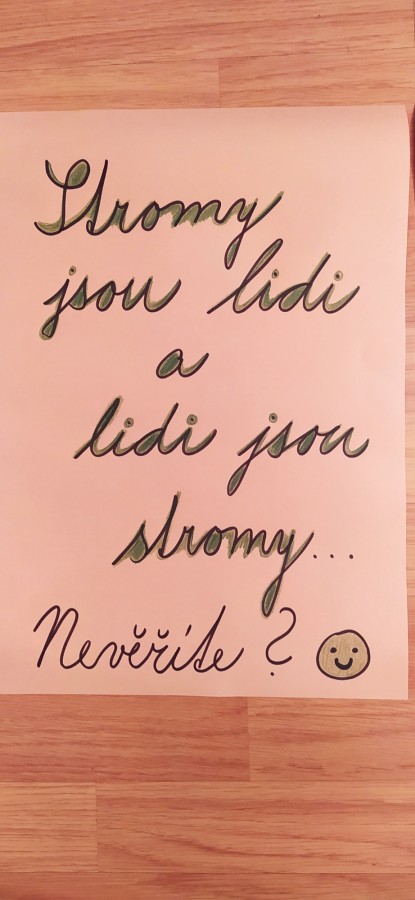 Stromy
jsou lidi
a
lidi jsou
stromy...
Nevěříte?